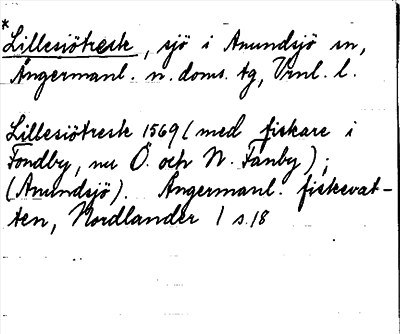 *
Lillesiötresk, sjö i Anundsjö sn,
Ångermanl. n. doms. tg, Vrnl. l.
Lillesiötresk 1569 (med fiskare i
Fondby, nu Ö. och N. Fanby);
(Anundsjö). Ångermanl. fiskevat-
ten, Nordlander 1 s. 18